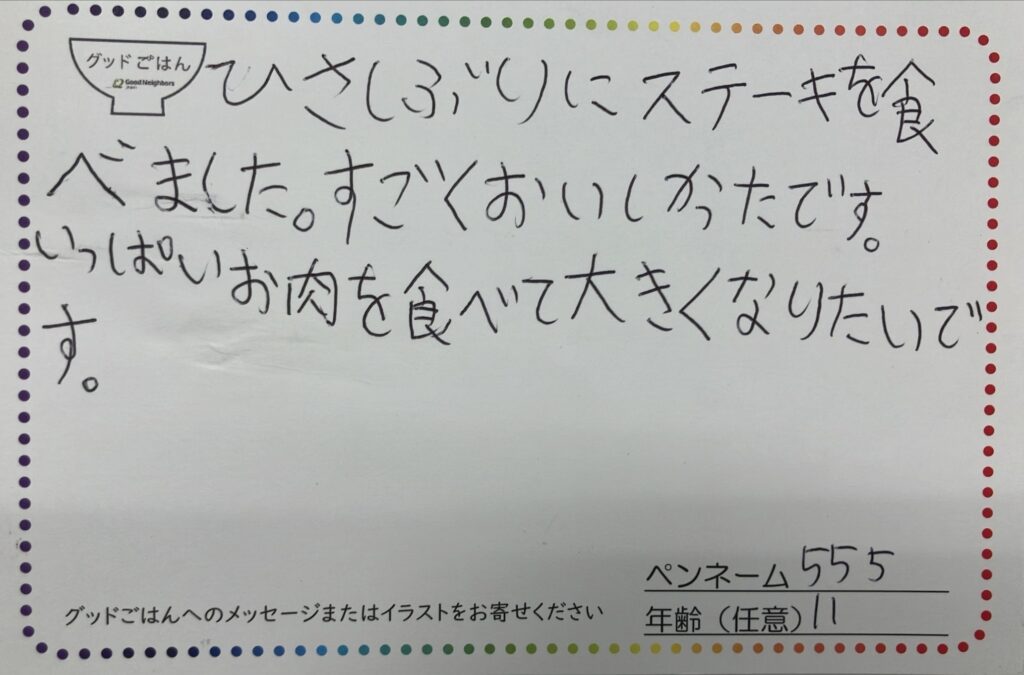 グッドごはん
Good Neighbors
ひさしぶりにステーキを食
べました。すごくおいしかったです。
いっぱいお肉を食べて大きくなりたいで
す。
ペンネーム 555
グッドごはんへのメッセージまたはイラストをお寄せください
年齢（任意）11